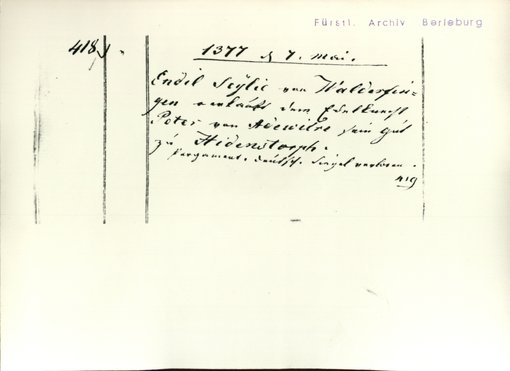 Fürstl. Archiv Berleburg
418
1377 d 7. Mai.
Endil Seylie von Walderfin-
gen verkauft dem Edelknecht
Peter von Adewilre sein Gut
zu Hidenstorph.
Pergament. deutsch. Siegel verloren.